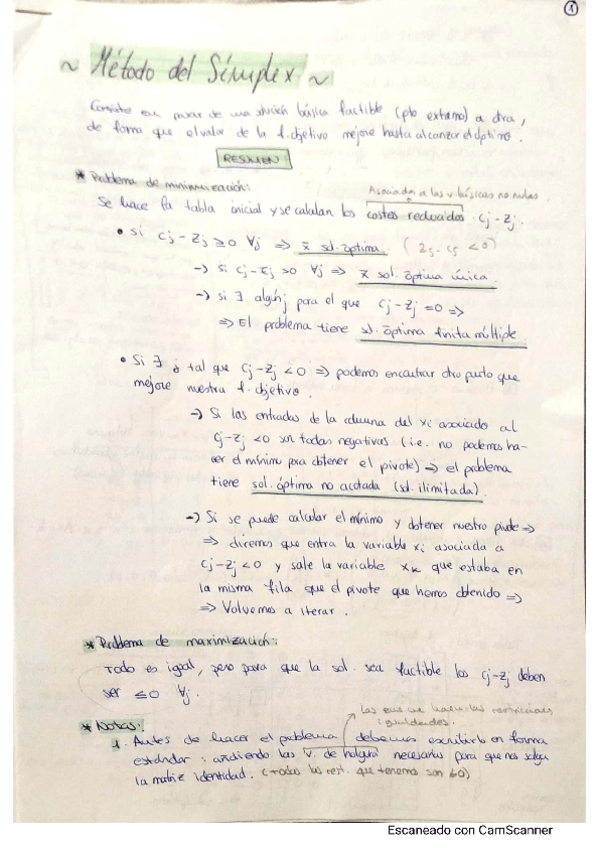 1
~ Método del Simplex ~
Consiste en pasar de una solución básica factible (pto extremo) a otra,
de forma que el valor de la f. objetivo mejore hasta alcanzar el óptimo.
RESUMEN:
* Problema de minimización:
Asociada a las v básicas no nulas.
Se hace la tabla inicial y se calculan los costes reducidos cj - zj.
• Si cj - zj ≥ 0 ∀j ⇒ x̄ sol. óptima. (zj - cj < 0)
→ si cj - zj > 0 ∀j ⇒ x̄ sol. óptima única.
→ si ∃ algún j para el que cj - zj = 0 ⇒
⇒ El problema tiene sol. óptima finita múltiple
• Si ∃ j tal que cj - zj < 0 ⇒ podemos encontrar otro punto que
mejore nuestra f. objetivo.
→ Si las entradas de la columna del xi asociado al
cj - zj < 0 son todas negativas (i.e. no podemos ha-
cer el mínimo para obtener el pivote) ⇒ el problema
tiene sol. óptima no acotada (sol. ilimitada).
→ Si se puede calcular el mínimo y obtener nuestro pivote ⇒
⇒ diremos que entra la variable xi asociada a
cj - zj < 0 y sale la variable xk que estaba en
la misma fila que el pivote que hemos obtenido ⇒
⇒ Volvemos a iterar.
* Problema de maximización:
Todo es igual, pero para que la sol. sea factible los cj - zj deben
ser ≤ 0 ∀j.
las que me hacen las restricciones
igualdades.
* Notas:
1. Antes de hacer el problema debemos escribirlo en forma
estándar: añadiendo las v. de holgura necesarias para que nos salga
la matriz identidad. (todas las rest. que tenemos son
Escaneado con CamScanner